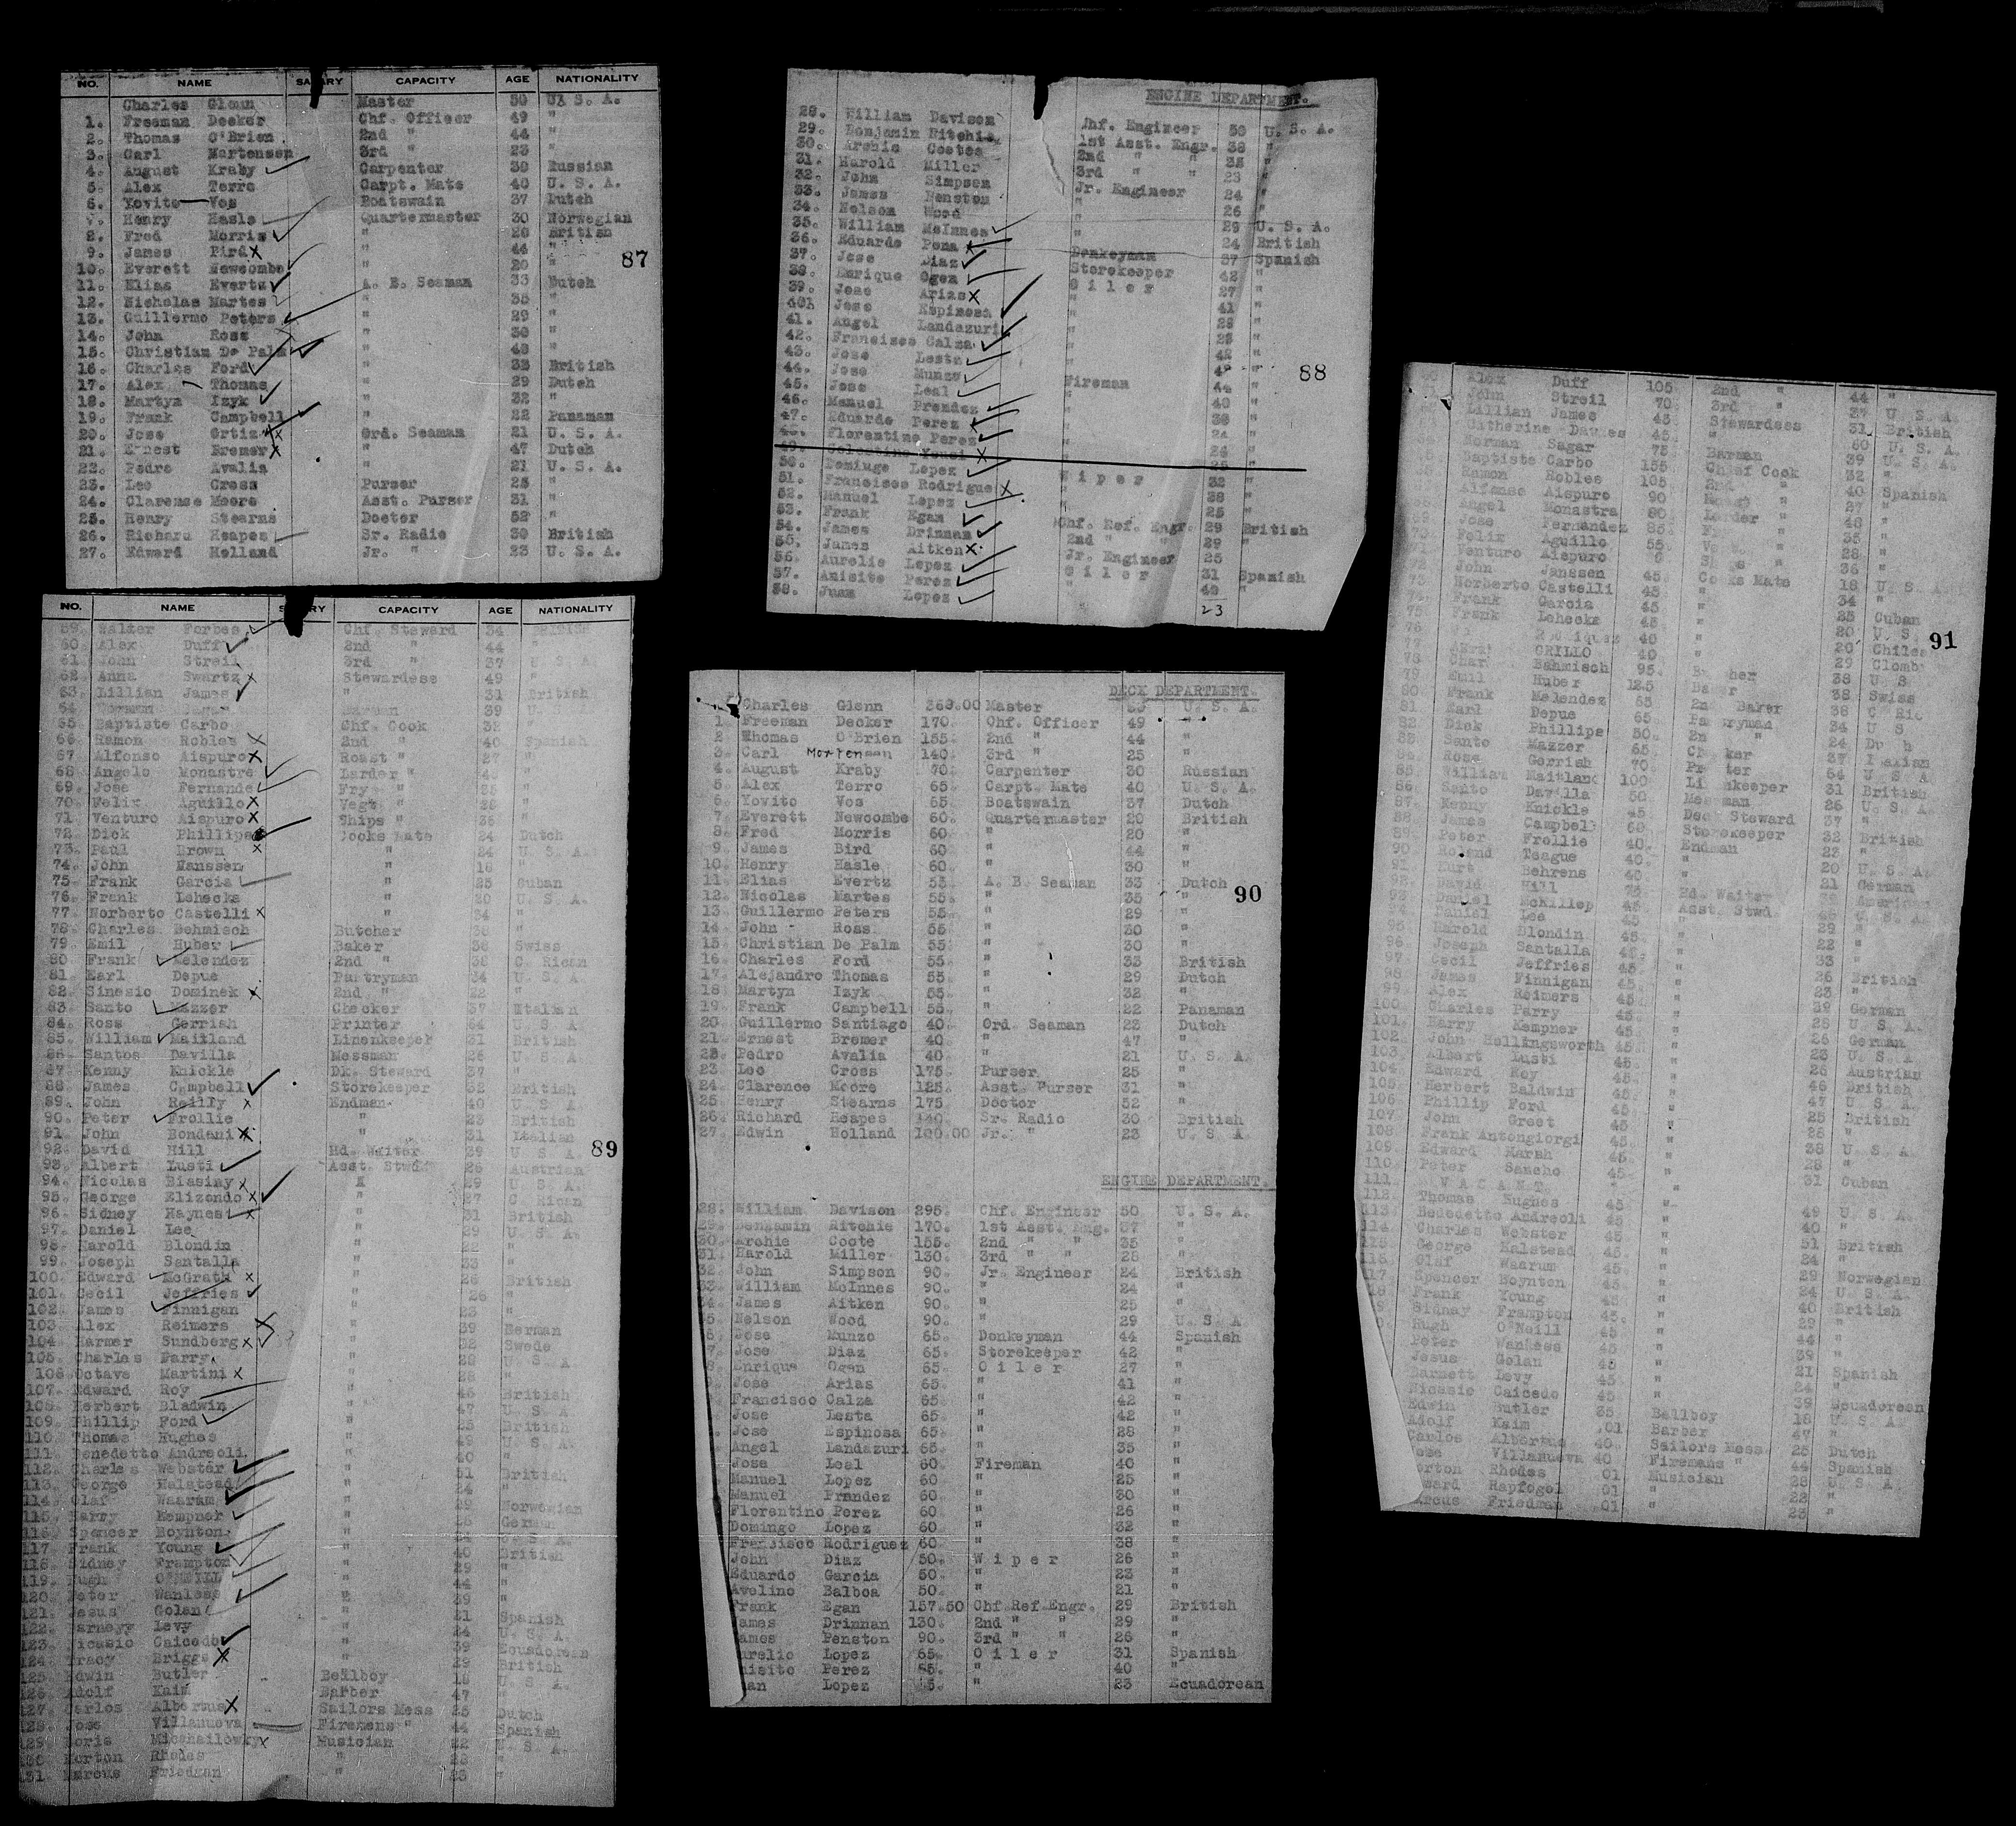 NO. NAME SALARY CAPACITY AGE NATIONALITY
Charles Glenn Master 50 U. S. A.
1. Freeman Decker Chf. Officer 49 "
2. Thomas O'Brien 2nd " 44 "
3. Carl Mortensen 3rd " 23 "
4. August Kraby Carpenter 30 Russian
5. Alex Terro Carpt. Mate 40 U. S. A.
6. Yovito Vos Boatswain 37 Dutch
7. Henry Hasle Quartermaster 30 Norwegian
8. Fred Morris " 20 British
9. James Bird X " 44 "
87
10. Everett Newcombe " 20 "
11. Elias Evertz A. B. Seaman 33 Dutch
12. Nicholas Martes " 35 "
13. Guillermo Peters " 29 "
14. John Ross " 30 "
15. Christian De Palm " 48 "
16. Charles Ford " 33 British
17. Alex Thomas " 29 Dutch
18. Martyn Izyk " 32 "
19. Frank Campbell " 22 Panaman
20. Jose Ortiz X Ord. Seaman 21 U. S. A.
21. Ernest Bremer X " 47 Dutch
22. Pedro Avalia " 21 U. S. A.
23. Leo Cross Purser 25 "
24. Clarense Moore Asst. Purser 31 "
25. Henry Stearns Doctor 52 "
26. Richard Heapes Sr. Radio 30 British
27. Edward Holland Jr. " 23 U. S. A.
ENGINE DEPARTMENT.
28. William Davison Chf. Engineer 50 U. S. A.
29. Benjamin Ritchie 1st Asst. Engr. 38 "
30. Archie Cootes 2nd " " 35 "
31. Harold Miller 3rd " " 23 "
32. John Simpson Jr. Engineer 24 "
33. James Penston " 26 "
34. Nelson Wood " 29 U. S. A.
35. William McInnes " 24 British
36. Eduardo Pena Donkeyman 37 Spanish
37. Jose Diaz Storekeeper 42 "
38. Enrique Ogen O i l e r 27 "
39. Jose Arias X " 41 "
40. Jose Espinosa " 28 "
41. Angel Landazuri "
42. Francisco Calza " 42 "
43. Jose Lesta "
44. Jose Munzo Fireman 44 "
88
45. Jose Leal " 40 "
46. Manuel Prendez "
47. Eduardo Perez " 24 "
48. Florentino Perez "
49.
50. Domingo Lopez 32 "
51. Francisco Rodriguez X W i p e r 38 "
52. Manuel Lopez 25 "
53. Frank Egan Chf. Ref. Engr. 29 British
54. James Drinnan 2nd " " 29 "
55. James Aitken X Jr. Engineer 25
56. Aurelio Lopez O i l e r 31 Spanish
57. Anisito Perez " 40 "
58. Juan Lopez " 23
NO. NAME CAPACITY AGE NATIONALITY
59. Walter Forbes Chf. Steward 54 British
60. Alex Duff 2nd " 44 "
61. John Streil 3rd " 37 U. S. A.
62. Anna Swartz X Stewardess 49 "
63. Lillian James " 31 British
64. Norman Sagar Barman 39 U. S.
65. Baptiste Carbo Chf. Cook 32 "
66. Ramon Robles X 2nd " 40 Spanish
67. Alfonso Aispuro X Roast " 27 "
68. Angelo Monastre Larder " 48 "
69. Jose Fernande Fry " 35 "
70. Felix Aguillo X Vegt " 28 "
71. Venturo Aispuro X Ships " 36 "
72. Dick Phillips Cooks Mate 24 Dutch
73. Paul Brown X " 24 U. S. A.
74. John Hanssen " 18 "
75. Frank Garcia " 25 Cuban
76. Frank Lehecka " 20 U. S. A.
77. Norberto Castelli X " 34 "
78. Charles Behmisch Butcher 38 "
79. Emil Huber Baker 38 Swiss
80. Frank Melendez 2nd " 38 C. Rican
81. Earl Depue Pantryman 34 U. S. A.
82. Sinesio Dominek X 2nd " 22 "
83. Santo Mazzer Checker 37 Italian
84. Ross Gerrish Printer 64 U. S. A
85. William Maitland Linenkeeper 31 British
86. Santos Davilla Messman 26 U. S. A.
87. Kenny Knickle Dk. Steward 37 "
88. James Campbell Storekeeper 32 British
89. John Reilly X Endman 40 U. S. A
90. Peter Frollie " 23 British
91. John Bondani X " 31 Italian
89
92. David Hill Hd. Waiter 39 U. S. A.
93. Albert Lusti Asst. Stwd. 26 Austrian
94. Nicolas Biasiny X " 29 U. S. A.
95. George Elizondo X " 27 C. Rican
96. Sidney Haynes X " 31 British
97. Daniel Lee " 39 U. S. A.
98. Harold Blondin " 22 "
99. Joseph Santalla " 33 "
100. Edward McGrath X " 26 British
101. Cecil Jeffries " 26 "
102. James Finnigan " 23 "
103. Alex Reimers " 39 German
104. Harmer Sundberg X " 32 Swede
105. Charles Parry " 28 U. S. A
106 Octave Martini X " 28 "
107. Edward Roy " 46 British
108. Herbert Bladwin " 47 U. S. A
109. Phillip Ford " 25 British
110. Thomas Hughes " 49 U. S. A.
111. Benedetto Andreoli " 40 "
112. Charles Webster " 51 British
113. George Halstead " 24 "
114. Olaf Waarum " 29 Norwegian
115. Harry Kempner " 26 German
116. Spencer Boynton " U. S. A.
117. Frank Young " 40 British
118. Sidney Frampton " 29 "
119. Hugh O'NEILL " 44 "
120. Peter Wanless " 39 "
121. Jesus Golan " 21 Spanish
122. Barneyy Levy " 24 U. S. A.
123. Nicasio Caicedo " 39 Ecuadorean
124. Tracy Briggs X " 29 British
125. Edwin Butler Bellboy 18 U. S. A.
126. Adolf Kaim Barber 47 "
127. Carlos Albertus X Sailors Mess 25 Dutch
128. Jose Villanueva Firemens " 44 Spanish
129. Boris Micahailowky X Musician 22 U. S. A.
130. Morton Rhodes " 28 "
131. Marcus Friedman " 23 "
DECK DEPARTMENT.
Charles Glenn 00 Master U. S. A.
1. Freeman Decker 170. Chf. Officer 49 "
2. Thomas O'Brien 155. 2nd " 44 "
3. Carl Mortensen 140. 3rd " 25 "
4. August Kraby 70. Carpenter 30 Russian
5. Alex Terro 65. Carpt. Mate 40 U. S. A.
6. Yovito Vos 65. Boatswain 37 Dutch
7. Everett Newcombe 60. Quartermaster 20 British
8. Fred Morris 60. " 20 "
9. James Bird 60 " 44 "
10. Henry Hasle 60. " 30 "
11. Elias Evertz 55. A. B. Seaman 33 Dutch
90
12. Nicolas Martes 55. " 35 "
13. Guillermo Peters 55. " 29 "
14. John Ross 55 " 30 "
15 Christian De Palm 55. " 30 "
16 Charles Ford 55. " 33 British
17. Alejandro Thomas 55. " 29 Dutch
18 Martyn Izyk 55. " 32 "
19. Frank Campbell 55. " 22 Panaman
20. Guillermo Santiago 40. Ord. Seaman 22 Dutch
21 Ernest Bremer 40. " 47 "
22. Pedro Avalia 40. " 21 U. S. A.
23. Leo Cross 175. Purser 25 "
24. Clarence Moore 125. Asst. Purser 31 "
25. Henry Stearns 175. Doctor 52 "
26. Richard Heapes 140. Sr. Radio 30 British
27. Edwin Holland 100.00 Jr. " 23 U. S. A.
ENGINE DEPARTMENT.
28. William Davison 295. Chf. Engineer 50 U. S. A.
29. Benjamin Ritchie 170. 1st Asst. Eng. 37 "
30. Archie Coote 155. 2nd " " 35 "
31. Harold Miller 130. 3rd " " 28 "
32. John Simpson 90. Jr. Engineer 24 British
33. William McInnes 90. " 24 "
34. James Aitken 90. " 25 "
35. Nelson Wood 90. " 29 U. S. A
6. Jose Munzo 65. Donkeyman 44 Spanish
7. Jose Diaz 65. Storekeeper 42 "
8. Enrique Ogen 65. O i l e r 27 "
Jose Arias 65. " 41 "
Francisco Calza 65. " 42 "
Jose Lesta 65. " 42 "
Jose Espinosa 65. " 28 "
Angel Landazuri 65. " 35 "
Jose Leal 60. Fireman 40 "
Manuel Lopez 60 " 25 "
Manuel Prandez 60 " 30 "
Florentino Perez 60 " 26 "
Domingo Lopez 60. " 32 "
Francisco Rodriguez 60. " 38 "
John Diaz 50. W i p e r 26 "
Eduardo Garcia 50. " 23 "
Avelino Balboa 50. " 21 "
Frank Egan 157.50 Chf Ref Engr. 29 British
ames Drinnan 130. 2nd " " 29 "
ames Penston 90. 3rd " " 26 "
urelio Lopez 65. O i l e r 31 Spanish
nisito Perez 65. " 40 "
an Lopez 5. " 23 Ecuadorean
Alex Duff 105 2nd " 44 "
John Streil 70. 3rd " 37 U. S. A.
Lillian James 45. Stewardess 31 British
Catherine Davies 45. " 60 U. S. A.
Norman Sagar 75. Barman 39 U. S. A.
Baptiste Carbo 155. Chief Cook 32 "
Ramon Robles 105. 2nd " 40 Spanish
Alfonso Aispuro 90 Roast " 27 "
Angel Monastra 80 Larder " 48 "
69. Jose Fernandez 85. Fry " 35 "
70. Felix Aguillo 55. " 28 "
71. Venturo Aispuro " 36 "
72 John Janssen 45. Cooks Mate 18 U. S. A.
73. Norberto Castelli 45 " 34 "
74. Frank Garcia 45. " 25 Cuban
75. Frank Lehecka 45. " 20 U. S.
76. 40 " 20
77. GRILLO 40. " 29
91
78. Char Bahmisch 95. 38 U. S
79. Emil Huber 125 Baker 38 Swiss
80. Frank Melendez 65 2nd Baker 38
81. Earl Depue 65. 34 U. S
82. Dick Phillips 50. 24
83. Santo Mazzer 65. 37 Italian
84. Rose Gerrish 70. 64 U. S. A
85. William Maitland 100. 31 British
86. Santo Davilla 50. Messman 26 U. S. A.
87. Kenny Knickle 45 Deck Steward 37 "
88. James Campbell 60. Storekeeper 32 British
89. Peter Frollie 40. Endman 23 "
90. Roland Teague 40. " 20 U. S. A.
91. Kurt Behrens 40. " 21 German
92. David Hill 75. Hd. Waiter 39 American
93. Daniel McKillep 45. Asst. Stwd. U. S. A.
94. Daniel Lee 45 " 29 "
95. Harold Blondin 45. " 22 "
96. Joseph Santalla 45. " 33 "
97. Cecil Jeffries 45. " 26 British
98. James Finnigan 45. " 23 "
99. Alex Reimers 45. " 39 German
100. Charles Parry 45. " 28 U. S. A.
101. Harry Kempner 45. " 26 German
102. John Hollingsworth 45. " 23 U. S. A
103. Albert Lusti 45. " 26 Austrian
104. Edward Roy 45. " 46 British
105. Herbert Baldwin 45. " 47 U. S. A.
106. Phillip Ford 45. " 25 British
107. John Greet 45. " 26 "
108. Frank Antongiorgi 45. " 38 U. S. A.
109. Edward Marsh 45. " 28 "
110. Peter Sancho 45. " 31 Cuban
111. V A C A N T.
112. Thomas Hughes 45 " 49 U. S. A.
113. Bededetto Andreoli 45 " 40 "
114. Charles Webster 45 " 51 British
115. George Halstead 45. " 24 "
116. Olaf Waarum 45. " 29 Norwegian
117 Spencer Boynton 45. " 24 U. S. A.
18 Frank Young 45. " 40 British
9. Sidnay Frampton 45. " 29 "
0. Hugh O'Neill 45 " 44 "
Peter Wanless 45 " 39 "
Jesus Golan 45 " 21 Spanish
Barnett Levy 45 " 24 "
Nicasio Caicedo 45. " 39 Ecuadorean
Edwin Butler 35. Bellboy 18 U. S. A.
Adolf Kaim .01 Barber 47 "
Carlos Albertus 40. Sailors Mess 25 Dutch
Jose Villanueva 40 Firemans " 44 Spanish
orton Rhodes 01 Musician 28 U. S. A.
ward Rapfogel 01 " 22 "
arcus Friedman .01 " 23 "